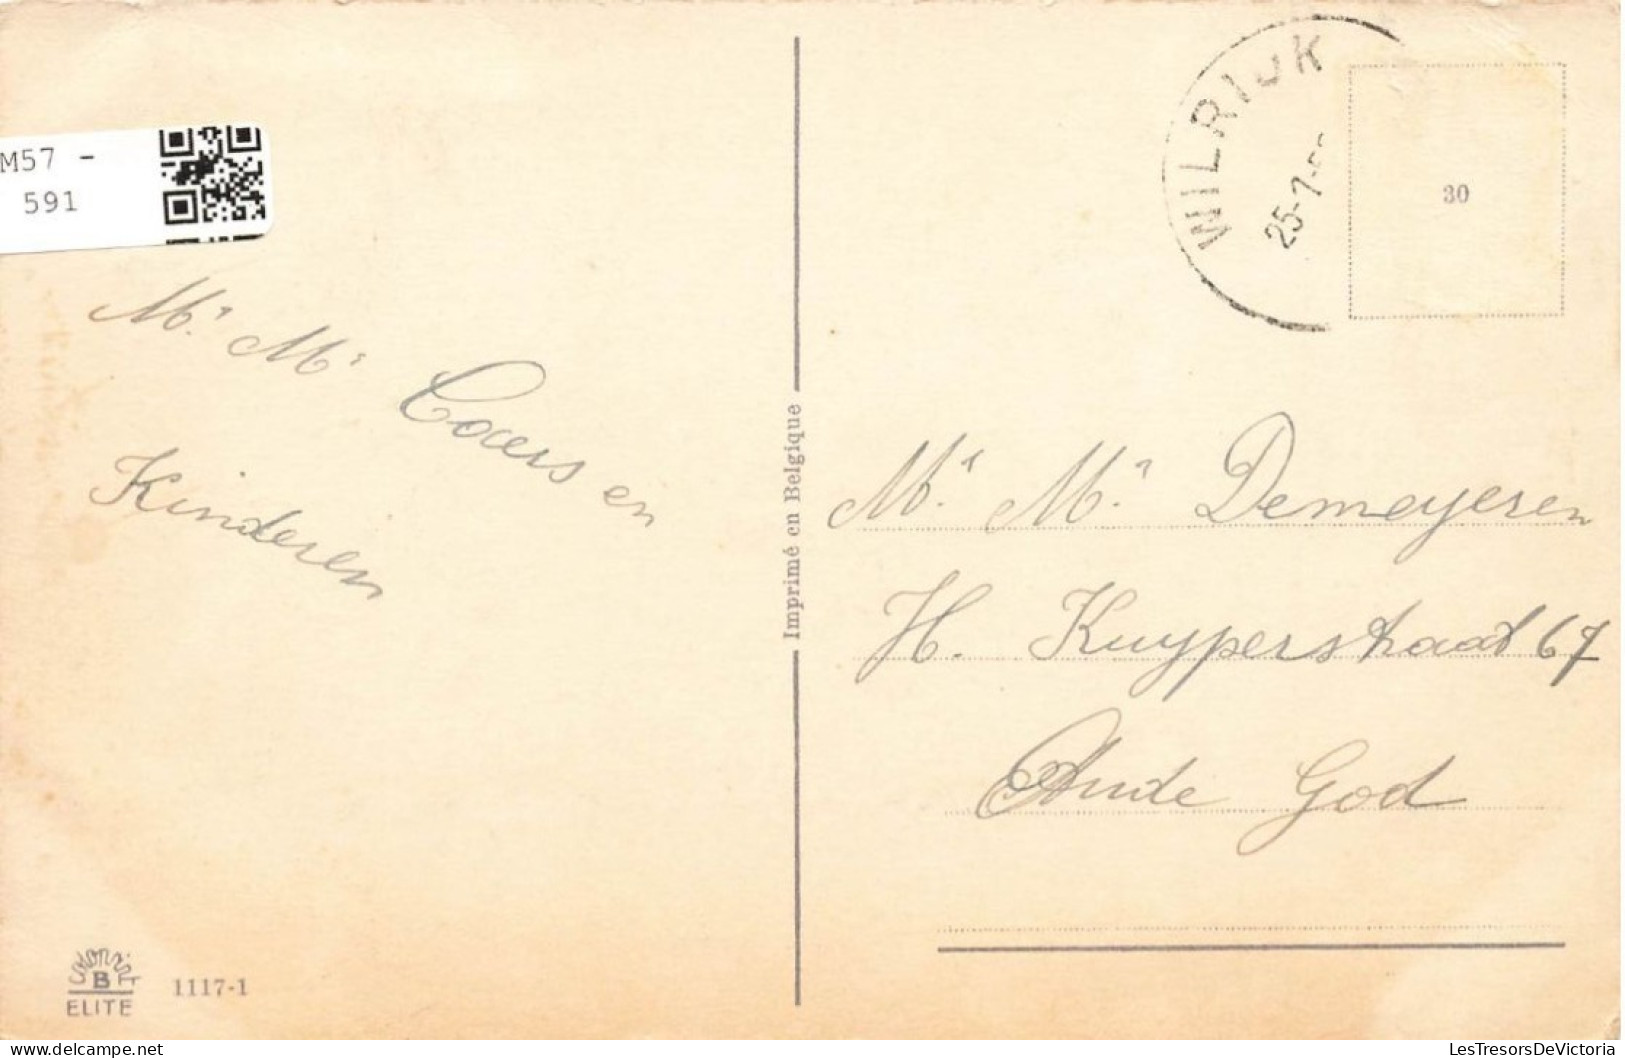 M57 -
591
WILRIJK
25-7-
30
Mr. Mr Coaers en
Kinderen
Imprimé en Belgique
Mr. Mr. Demeyeren
H. Kuyperstraat 67
Oude God
colorvit
B
ELITE
1117-1
LesTresorsDeVictoria